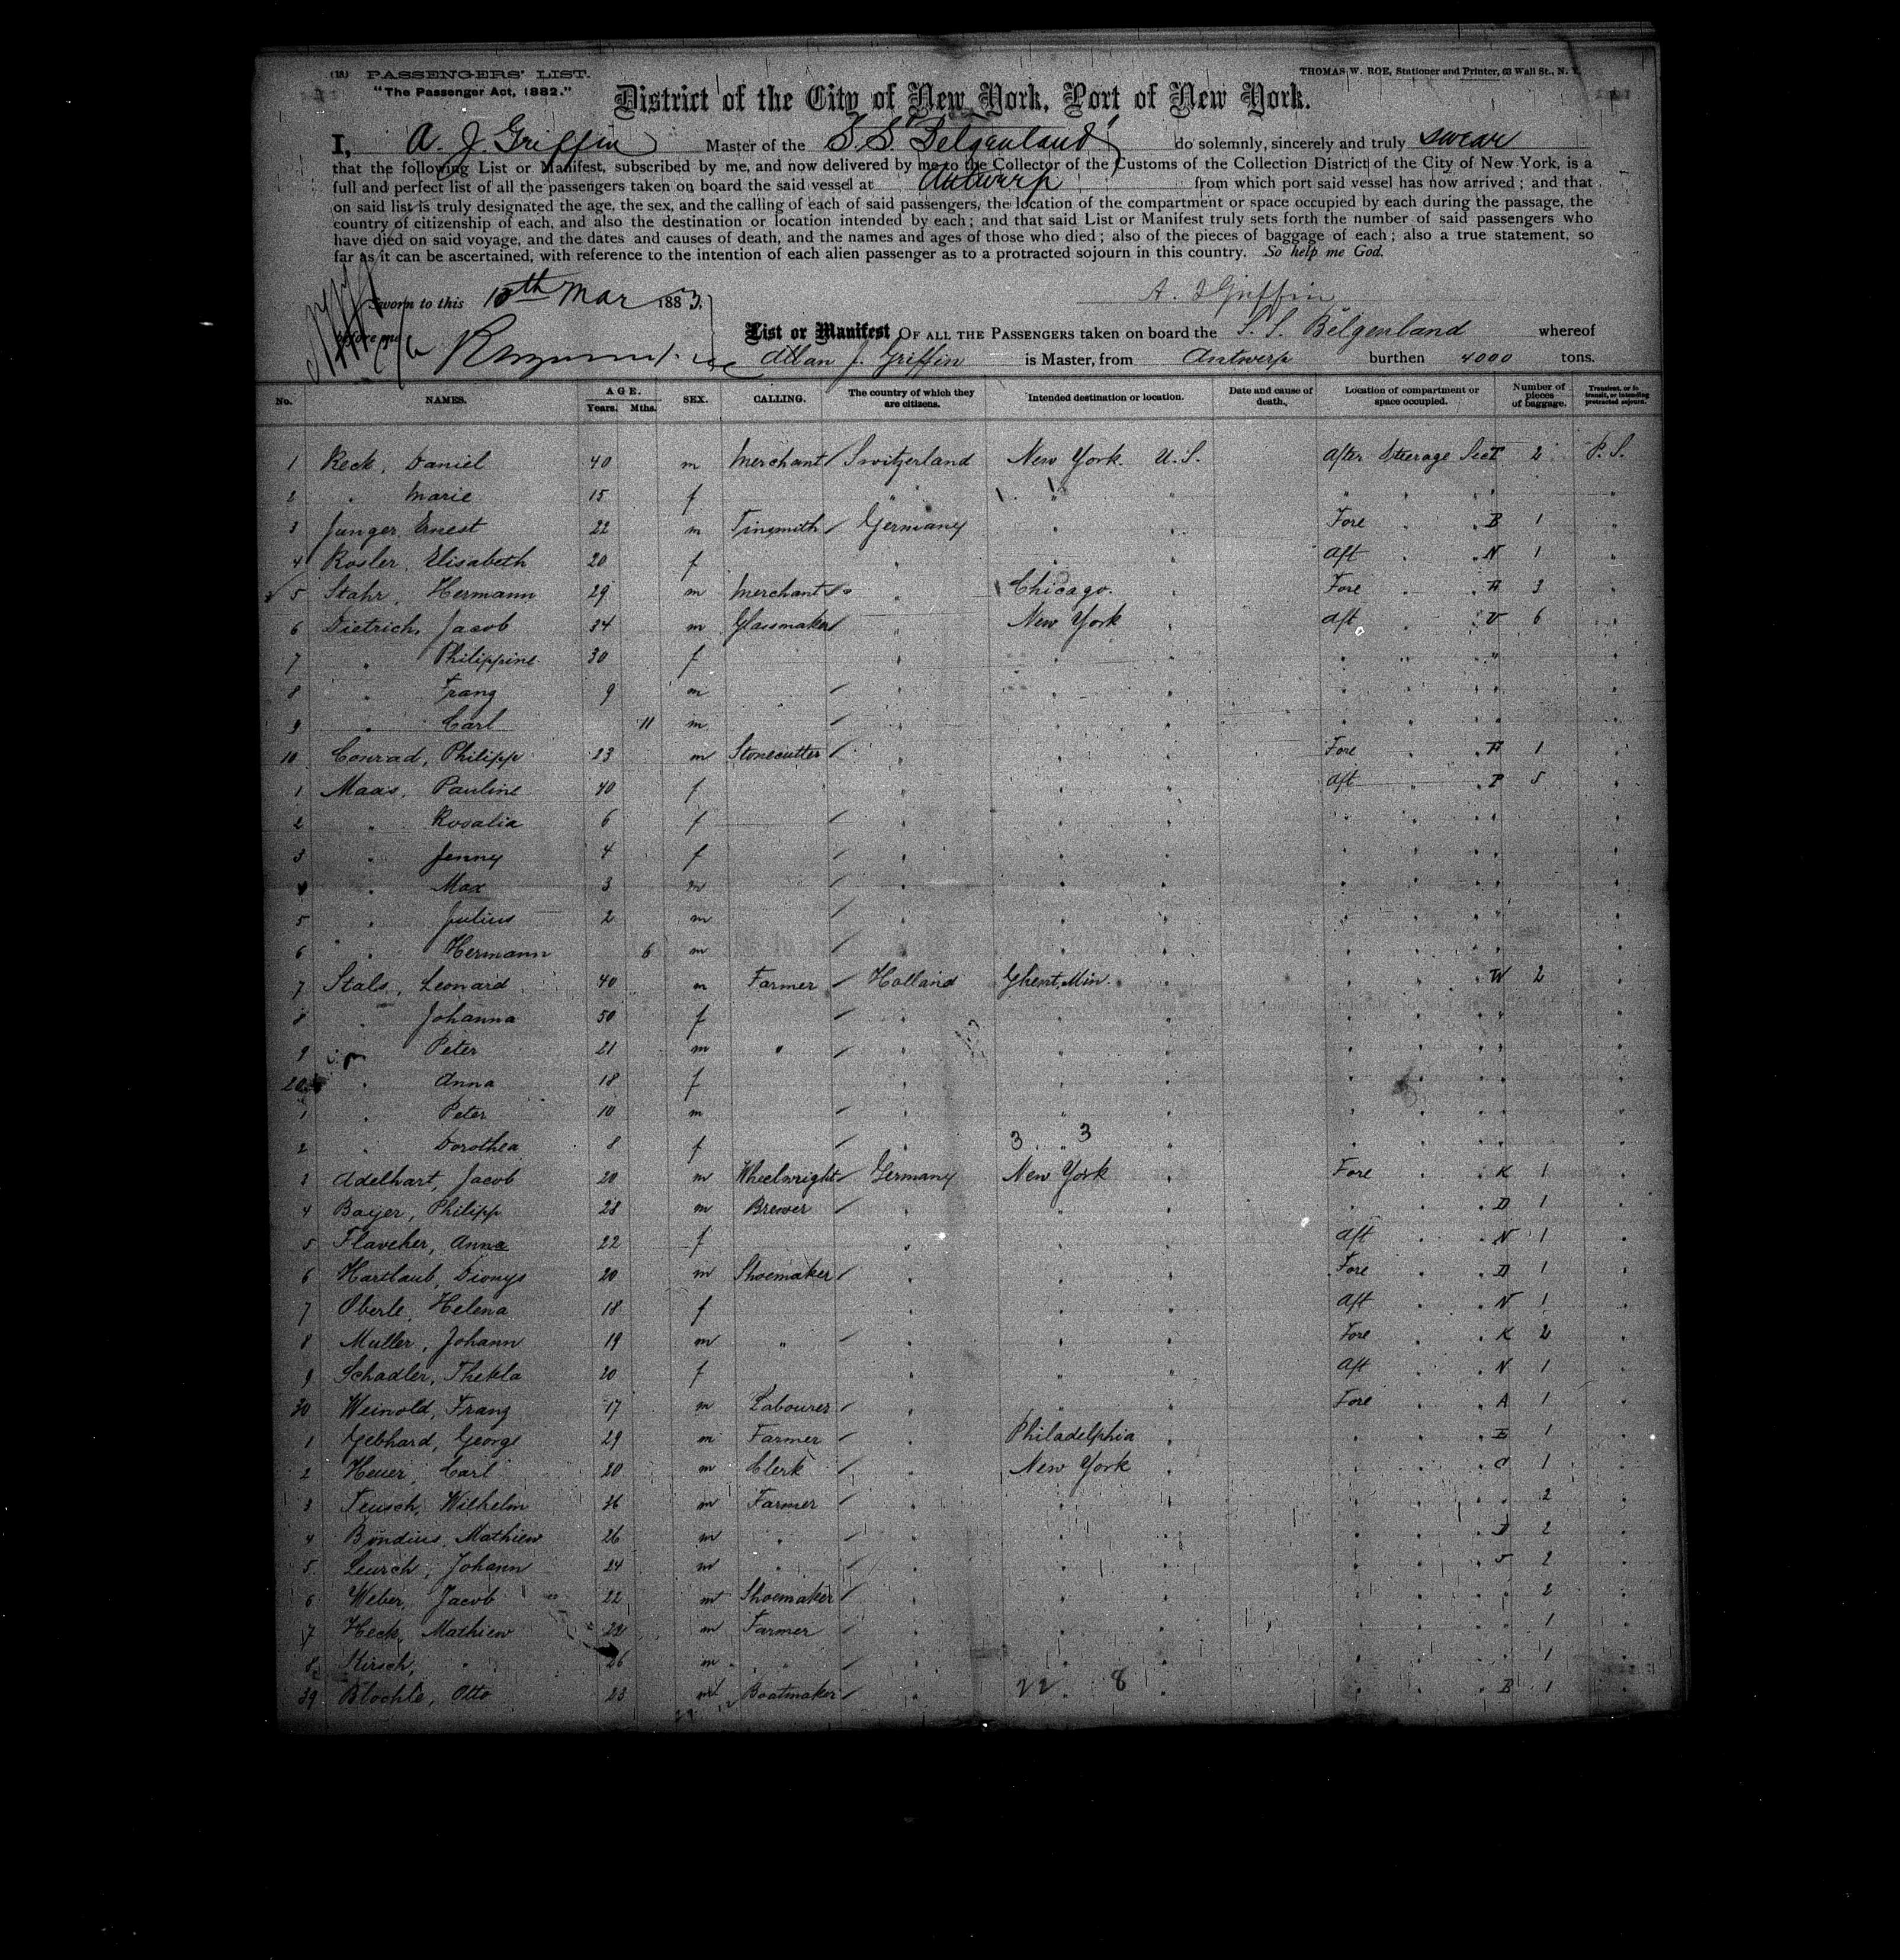 (18) PASSENGERS' LIST.
"The Passenger Act, 1882."
THOMAS W. ROE, Stationer and Printer, 63 Wall St., N. Y.
District of the City of New York, Port of New York.
I, A. J. Griffin Master of the S.S. "Belgenland" do solemnly, sincerely and truly swear
that the following List or Manifest, subscribed by me, and now delivered by me to the Collector of the Customs of the Collection District of the City of New York, is a
full and perfect list of all the passengers taken on board the said vessel at Antwerp from which port said vessel has now arrived; and that
on said list is truly designated the age, the sex, and the calling of each of said passengers, the location of the compartment or space occupied by each during the passage, the
country of citizenship of each, and also the destination or location intended by each; and that said List or Manifest truly sets forth the number of said passengers who
have died on said voyage, and the dates and causes of death, and the names and ages of those who died; also of the pieces of baggage of each; also a true statement, so
far as it can be ascertained, with reference to the intention of each alien passenger as to a protracted sojourn in this country. So help me God.
Sworn to this Mar 1883.
A. J Griffin
before me
List or Manifest OF ALL THE PASSENGERS taken on board the S. S. Belgenland whereof
Allan J. Griffin is Master, from Antwerp burthen 4000 tons.
No. NAMES. AGE. Years. Mths. SEX. CALLING. The country of which they are citizens. Intended destination or location. Date and cause of death. Location of compartment or space occupied. Number of pieces of baggage. Transient, or in transit, or intending protracted sojourn.
1 Reck, Daniel 40 m Merchant Switzerland New York. U.S. After Steerage Sect 2 P. S.
2 " Marie 15 f " "
3 Junger Ernest 22 m Tinsmith Germany " Fore " B 1 "
4 Rosler, Elisabeth 20 f " " Aft " N 1 "
5 Stahr, Hermann 29 m Merchant " Chicago. " Fore " A 3 "
6 Dietrich, Jacob 34 m Glassmaker New York " Aft " V 6 "
7 " Philippine 30 f " " "
8 " Franz 9 m " " "
9 " Carl 11 m " " "
10 Conrad, Philipp 23 m Stonecutter " " Fore " A 1 "
1 Maas, Pauline 40 f " " Aft " P 5 "
2 " Rosalia 6 f " " "
3 " Jenny 4 f " " "
4 " Max 3 m " " "
5 " Julius 2 m " " "
6 " Hermann 6 m " " "
7 Stals, Leonard 40 m Farmer Holland Ghent, Min. " " W 2 "
8 " Johanna 50 f " " "
9 " Peter 21 m " " " "
20 " Anna 18 f " " "
1 " Peter 10 m " " "
2 " Dorothea 8 f " 3 " 3 "
3 Adelhart, Jacob 20 m Wheelwright Germany New York " Fore " K 1 "
4 Bayer, Philipp 28 m Brewer " " " D 1 "
5 Flavcher, Anna 22 f " " Aft " N 1 "
6 Hartlaub, Dionys 20 m Shoemaker " " Fore " D 1 "
7 Oberle, Helena 18 f " " Aft " N 1 "
8 Muller, Johann 19 m " " " Fore " K 2 "
9 Schadler, Thekla 20 f " " Aft " N 1 "
30 Weinold, Franz 17 m Labourer " " Fore " A 1 "
1 Gebhard, George 29 m Farmer " Philadelphia " " B 1 "
2 Heuer, Carl 20 m Clerk " New York " " C 1 "
3 Teusch, Wilhelm 36 m Farmer " " " 2 "
4 Bondius, Mathieu 26 m " " " J 2 "
5 Leurch, Johann 24 m " " " J 2 "
6 Weber, Jacob 22 m Shoemaker " " " 2 "
7 Heck, Mathieu 22 m Farmer " " " 1 "
8 Kirsch, " 26 m " " " 1 "
39 Blochle, Otto 23 m Boatmaker " 22 8 " B 1 "